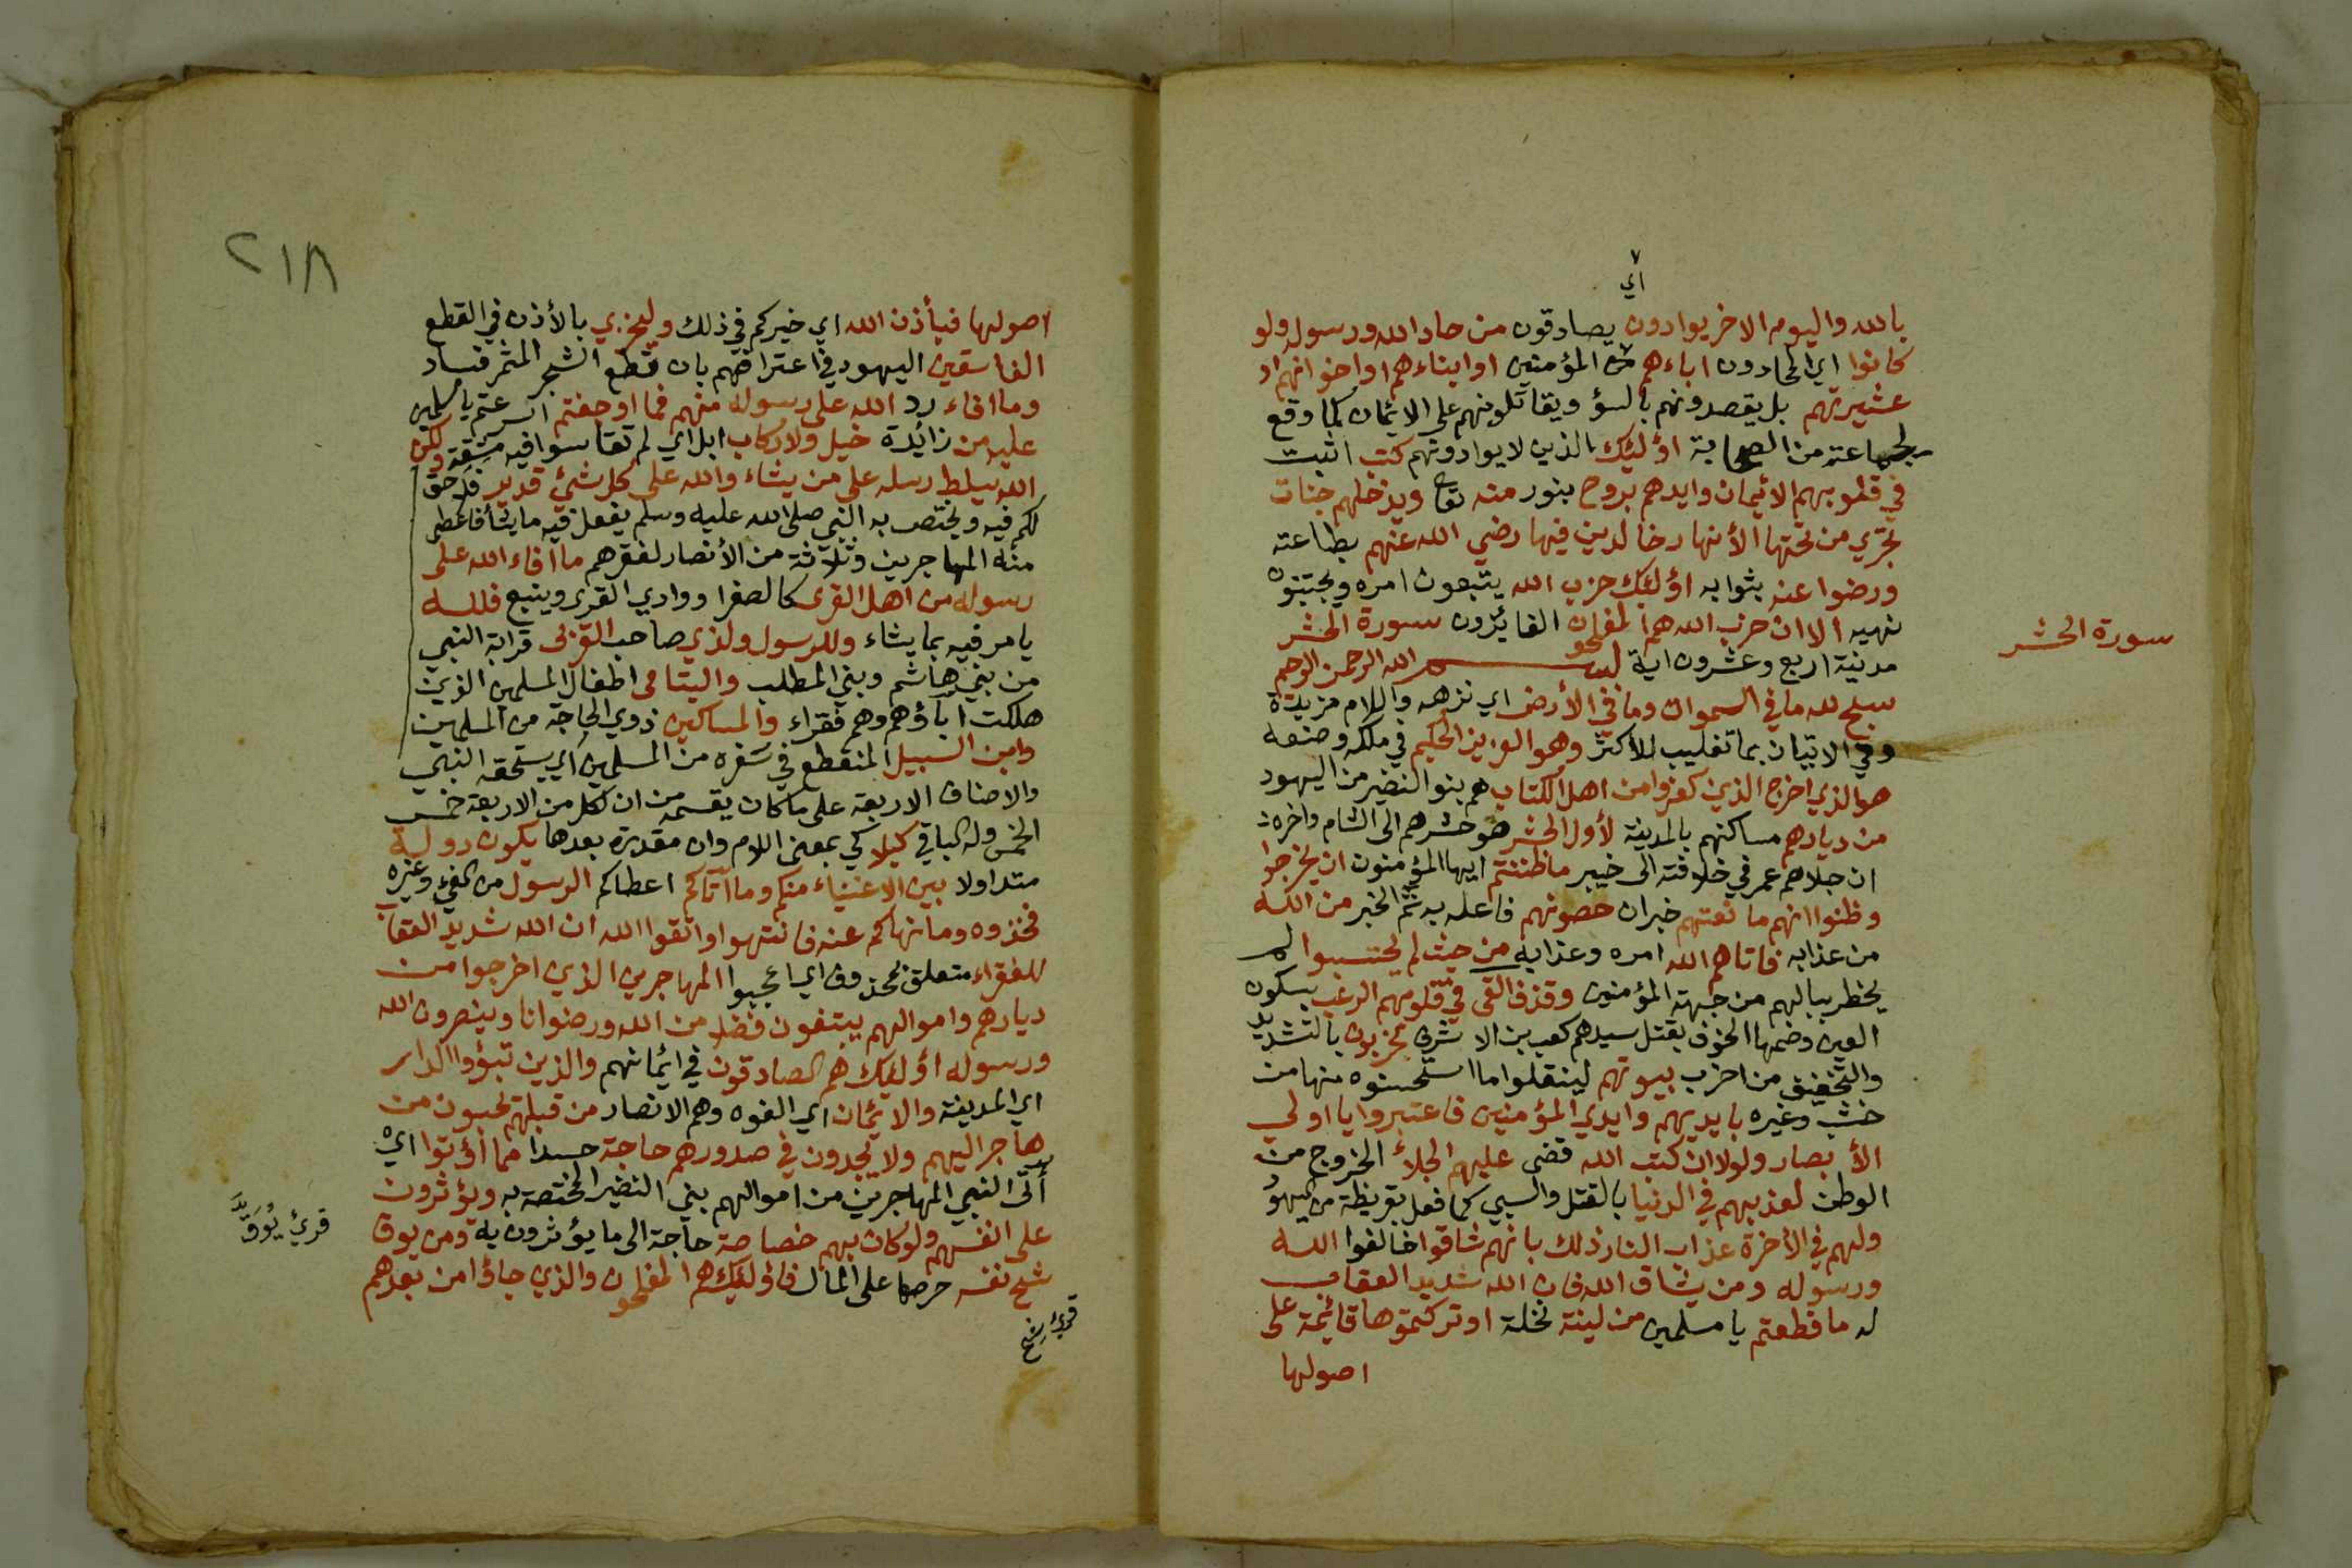 اي
بالله واليوم الاخر يوادون يصادقون من حاد الله ورسوله ولو
كانوا اي المحادون اباءهم من المؤمنين او ابناءهم او اخوانهم او
عشيرتهم بل يقصدونهم بالسؤ ويقاتلونهم على الايمان كما وقع
لجماعة من الصحابة اؤلئك الذين لا يوادونهم كتب اثبت
في قلوبهم الائيمان وايدهم بروح بنور منه تعا ويدخلهم جنات
تجري من تحتها الأنهار خالدين فيها رضي الله عنهم بطاعته
ورضوا عنه بثوابه اؤلئك حزب الله يتبعون امره ويجتنبون
نهيه الا ان حزب الله هم المفلحون الفائزون سورة الحشر
سورة الحشر
مدنية اربع وعشرون اية بسم الله الرحمن الرحيم
سبح لله ما في السموات وما في الأرض اي نزهه واللام مزيدة
وفي الاتيان بما تغليب للأكثر وهو العزيز الحكيم في ملكه وصنعه
هو الذي اخرج الذين كفروا من اهل الكتاب هم بنو النضير من اليهود
من ديارهم مساكنهم بالمدينة لأول الحشر هو حشرهم الى الشام واخره
ان جلاهم عمر في خلافته الى خيبر ما ظننتم ايها المؤمنون ان يخرجوا
وظنوا انهم مانعتهم خبر ان حصونهم فاعله به تم الخبر من الله
من عذابه فاتاهم الله امره وعذابه من حيث لم يحتسبوا لم
يخطر ببالهم من جهة المؤمنين وقذف القى في قلوبهم الرعب بسكون
العين وضمها الخوف بقتل سيدهم كعب بن الاشرف يخربون بالتشديد
والتخفيف من اخرب بيوتهم لينقلوا ما استحسنوه منها من
خشب وغيره بايديهم وايدي المؤمنين فاعتبروا يا اولي
الأبصار ولولا ان كتب الله قضى عليهم الجلاء الخروج من
الوطن لعذبهم في الدنيا بالقتل والسبي كما فعل بقريظة من اليهود
ولهم في الأخرة عذاب النار ذلك بانهم شاقوا خالفوا الله
ورسوله ومن يشاق الله فان الله شديد العقاب
له ما قطعتم يا مسلمين من لينة نخلة او تركتموها قائمة على
اصولها
٢١٨
اصولها فبأذن الله اي خيركم في ذلك وليخزي بالأذن في القطع
الفاسقين اليهود في اعتراضهم بان قطع الشجر المثمر فساد
وما افاء رد الله على رسوله منهم فما اوجفتم اسرعتم يا مسلمين
عليه من زائدة خيل ولا ركاب ابل اي لم تقاسوا فيه مشقة ولكن
الله يسلط رسله على من يشاء والله على كل شئ قدير فلا حق
لكم فيه ويختص به النبي صلى الله عليه وسلم يفعل فيه ما يشأ فاعطى
منه المهاجرين وثلاثة من الأنصار لفقرهم ما افاء الله على
رسوله من اهل القرى كالصفرا ووادي القرى وينبع فلله
يامر فيه بما يشاء وللرسول ولذي صاحب القربى قرابة النبي
من بني هاشم وبني المطلب واليتامى اطفال المسلمين الذين
هلكت اباؤهم وهم فقراء والمساكين ذوي الحاجة من المسلمين
وابن السبيل المنقطع في سفره من المسلمين اي يستحقه النبي
والاصناف الاربعة على ما كان يقسمه من ان لكل من الاربعة خمس
الخمس وله الباقي كيلا كي بمعنى اللام وان مقدرة بعدها يكون دولة
متداولا بين الاغنياء منكم وما آتاكم اعطاكم الرسول من الفيء وغيره
فخذوه وما نهاكم عنه فانتهوا واتقوا الله ان الله شديد العقاب
للفقراء متعلق بمحذوف اي اعجبوا المهاجرين الذي اخرجوا من
ديارهم واموالهم يبتغون فضلا من الله ورضوانا وينصرون الله
ورسوله اؤلئك هم الصادقون في ائيمانهم والذين تبؤوا الدار
اي المدينة والائيمان اي الفوه وهم الانصار من قبلهم يحبون من
هاجر اليهم ولا يجدون في صدورهم حاجة حسدا مما أؤتوا اي
أتى النبي المهاجرين من اموالهم بني النضير المختصة به ويؤثرون
على انفسهم ولو كان بهم خصاصة حاجة الى ما يؤثرون به ومن يوق
قرئ يُوَقَّ
شح نفسه حرصها على المال فاؤلئك هم المفلحون والذي جاؤا من بعدهم
قرئ شح